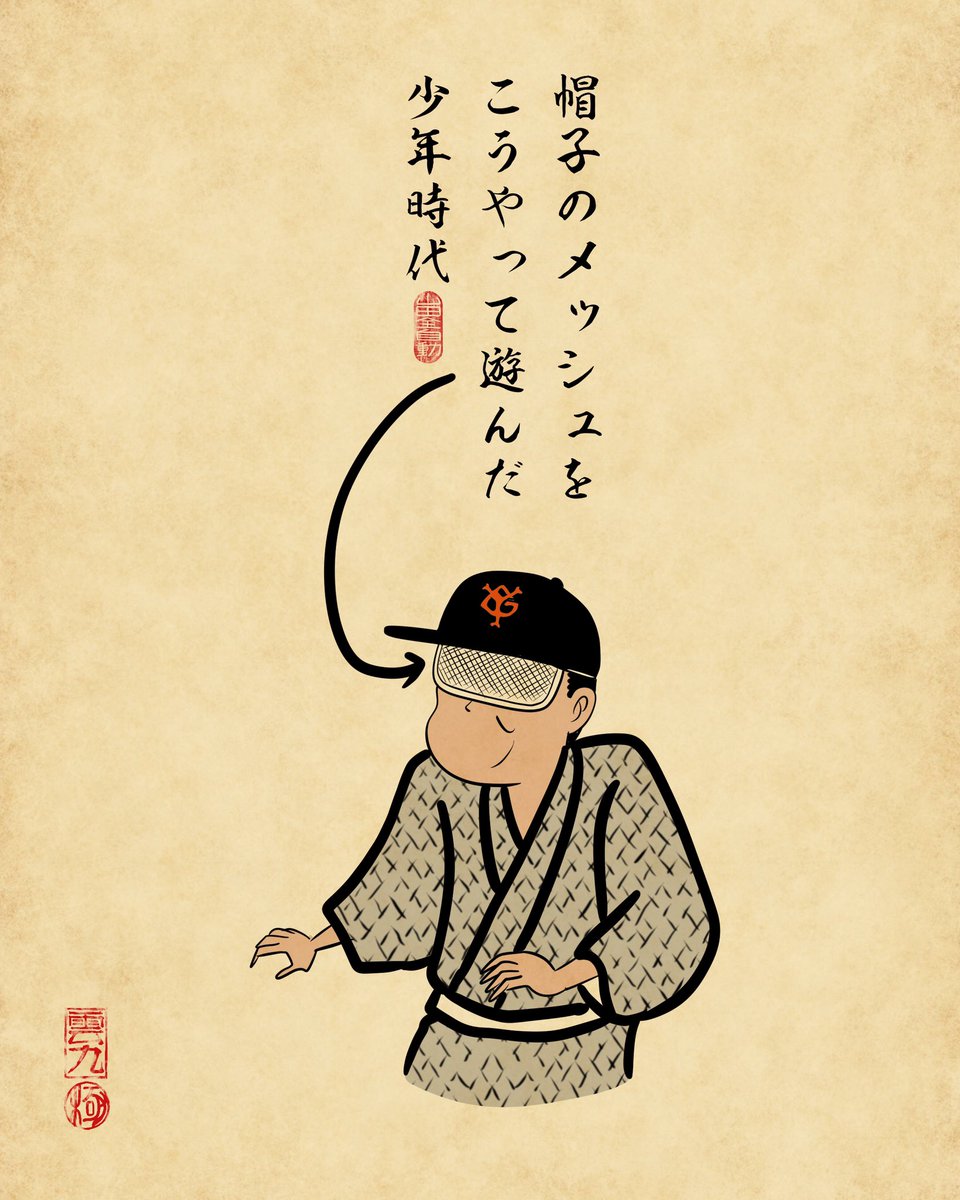 帽子のメッシュを
こうやって遊んだ
少年時代
YG
雲九
極